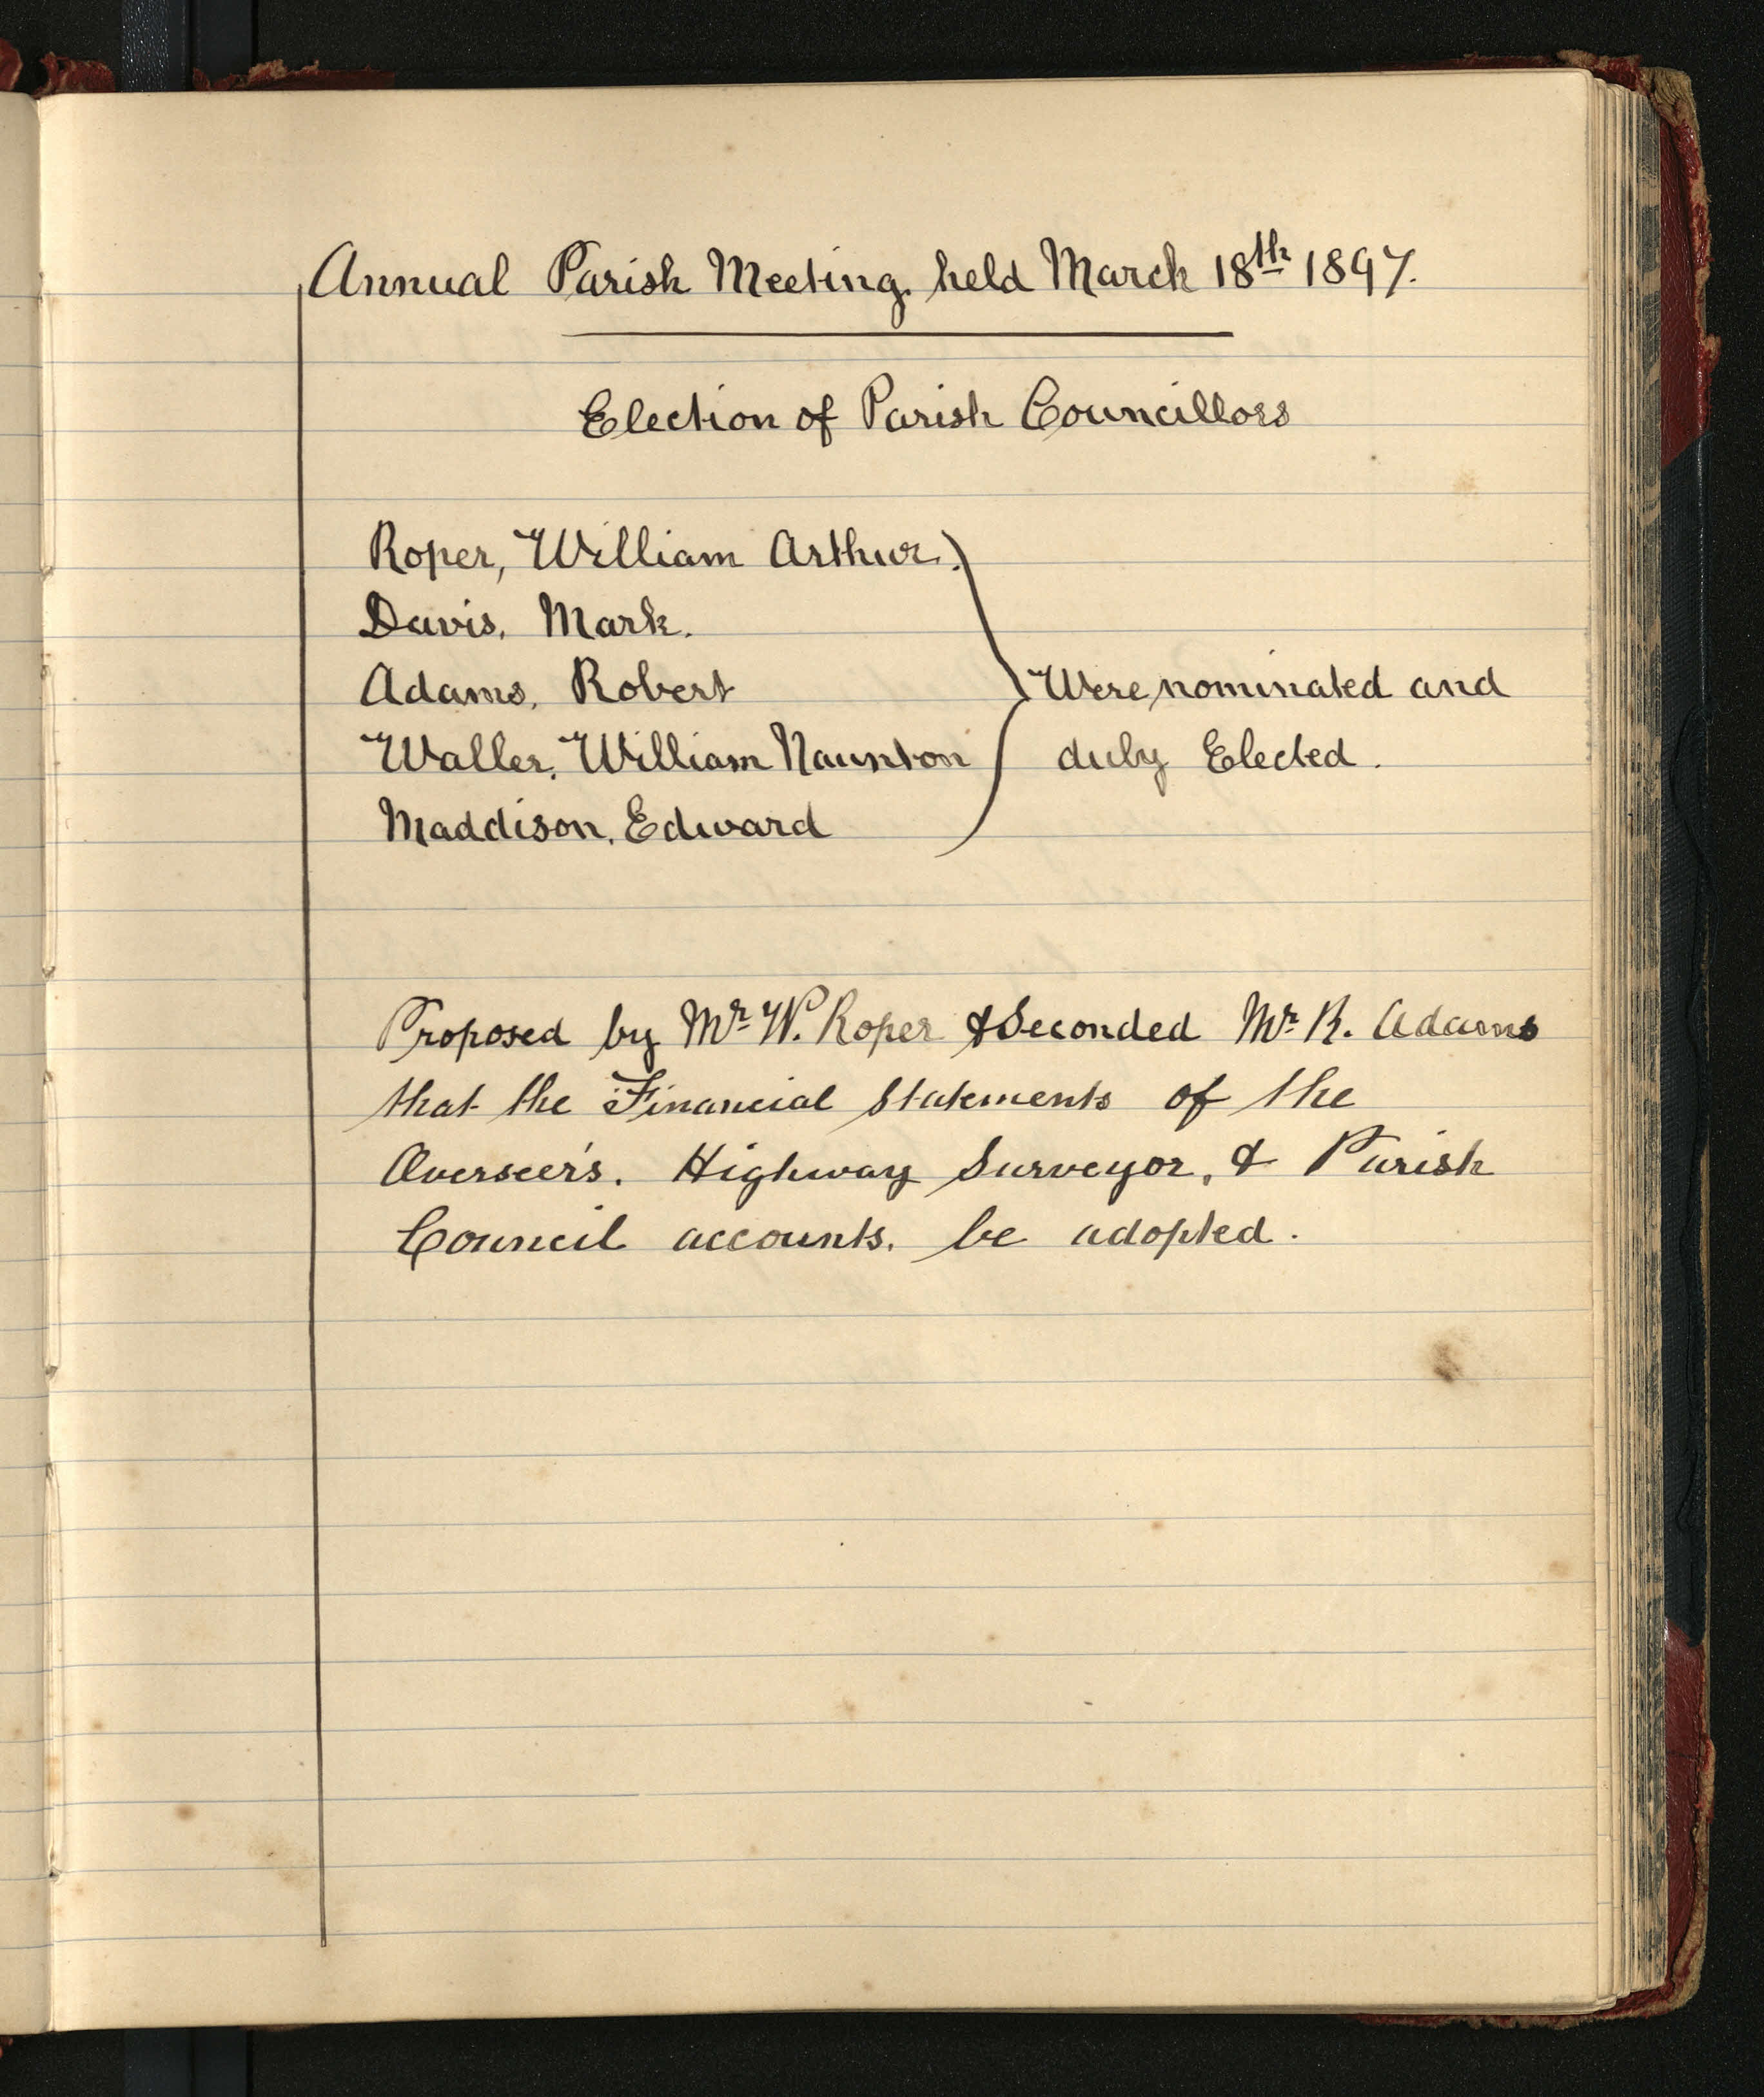 Annual Parish Meeting held March 18th 1897.
Election of Parish Councillors
Roper, William Arthur.
Davis, Mark.
Adams, Robert
Waller, William Naunton
Maddison, Edward
Were nominated and
duly Elected.
Proposed by Mr W. Roper & Seconded Mr R. Adams
that the Financial Statements of the
Overseer's. Highway Surveyor, & Parish
Council accounts, be adopted.